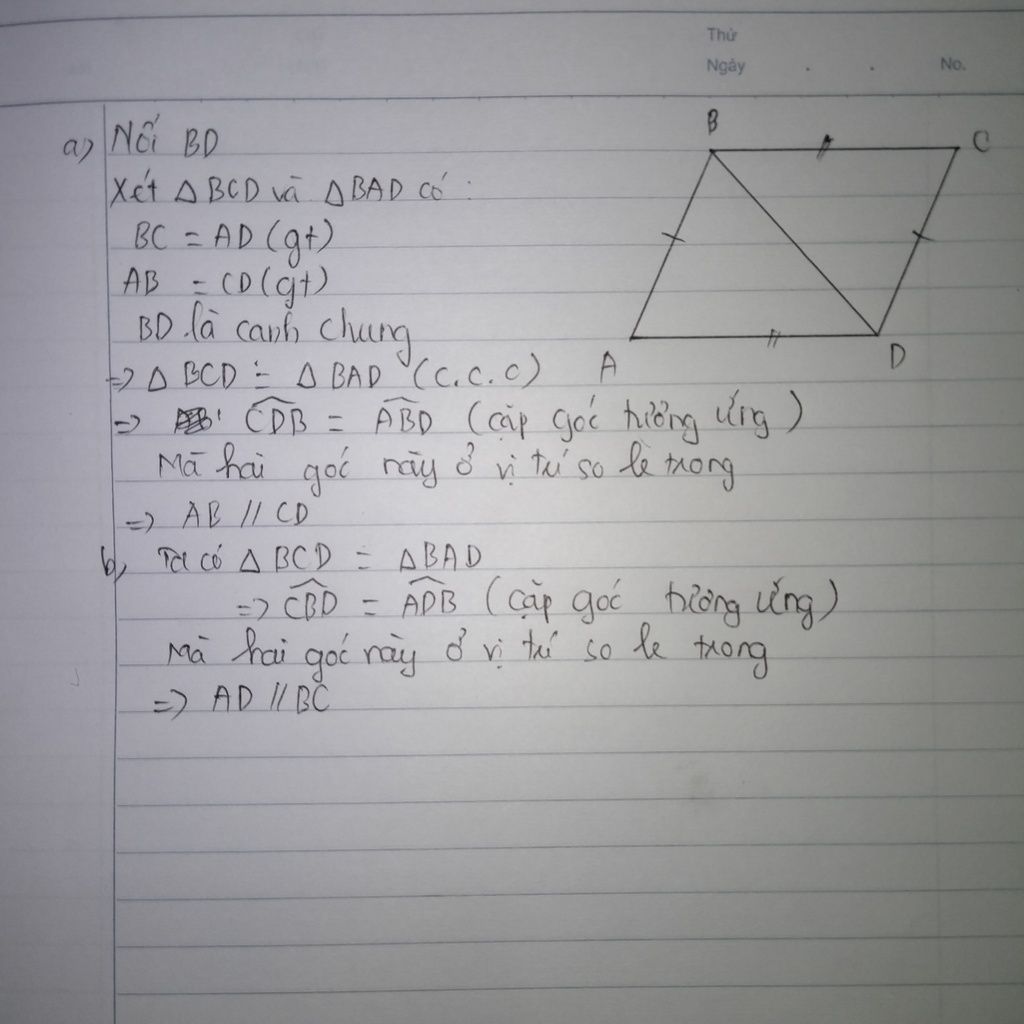 Thứ
Ngày . . No.
a) Nối BD
Xét △ BCD và △ BAD có :
BC = AD (gt)
AB = CD (gt)
BD là cạnh chung
=> △ BCD = △ BAD (c.c.c)
=> CDB = ABD (cặp góc tương ứng)
Mà hai góc này ở vị trí so le trong
=> AB // CD
b, Ta có △ BCD = △ BAD
=> CBD = ADB (cặp góc tương ứng)
Mà hai góc này ở vị trí so le trong
=> AD // BC
B
C
A
D